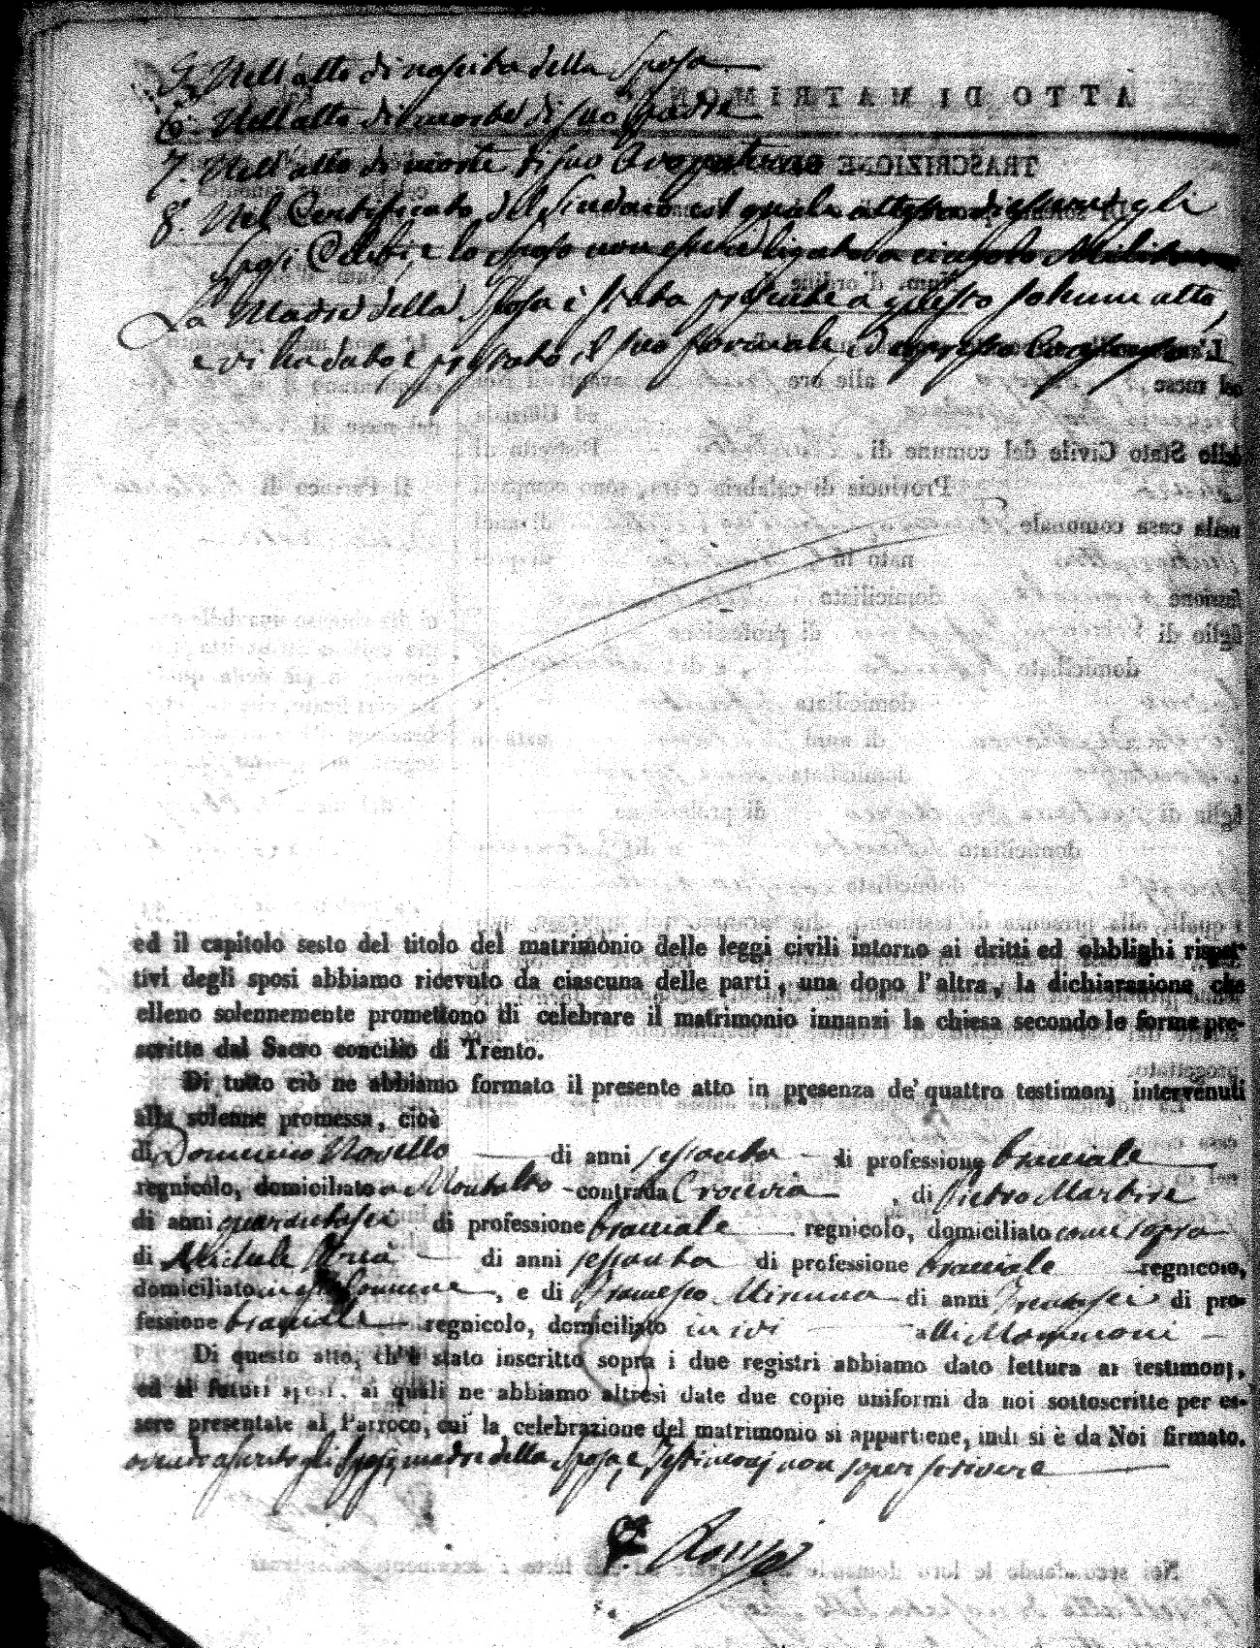 5. Nell'atto di nascita della Sposa
6. Nell'atto di morte di suo Padre
7. Nell'atto di morte di suo Avo paterno
8. Nel Certificato del Sindaco col quale attesta di essere gli
Sposi Celibi, e lo Sposo non essere ligato a cingolo Militare
La Madre della Sposa è stata presente a questo solenne atto,
e vi ha dato e prestato il suo formale, ed espresso Consenso
ed il capitolo sesto del titolo del matrimonio delle leggi civili intorno ai dritti ed obblighi rispet-
tivi degli sposi abbiamo ricevuto da ciascuna delle parti, una dopo l'altra, la dichiarazione che
elleno solennemente promettono di celebrare il matrimonio innanzi la chiesa secondo le forme pre-
scritte dal Sacro concilio di Trento.
Di tutto ciò ne abbiamo formato il presente atto in presenza de' quattro testimonj intervenuti
alla solenne promessa, cioè
di Domenico Novello di anni sessanta di professione bracciale
regnicolo, domiciliato a Montalto contrada Crocevia, di Pietro Martire
di anni quarantasei di professione bracciale regnicolo, domiciliato come sopra
di Michele di anni sessanta di professione bracciale regnicolo,
domiciliato in Comune, e di Francesco di anni Trentasei di pro-
fessione bracciale regnicolo, domiciliato in ivi alli
Di questo atto, ch'è stato inscritto sopra i due registri abbiamo dato lettura ai testimonj,
ed ai futuri sposi, ai quali ne abbiamo altresì date due copie uniformi da noi sottoscritte per es-
sere presentate al Parroco, cui la celebrazione del matrimonio si appartiene, indi si è da Noi firmato.
avendo asserito gli Sposi, madre della Sposa, e Testimonj non saper scrivere